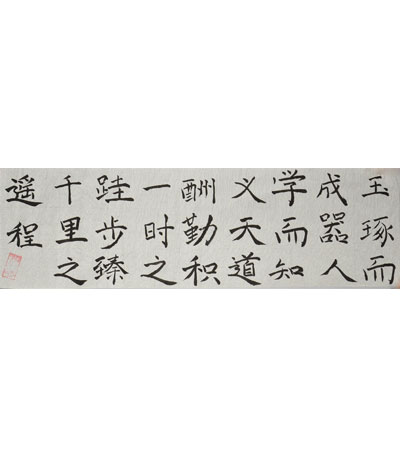 玉琢而
成器人
学而知
义天道
酬勤积
一时之
跬步臻
千里之
遥程